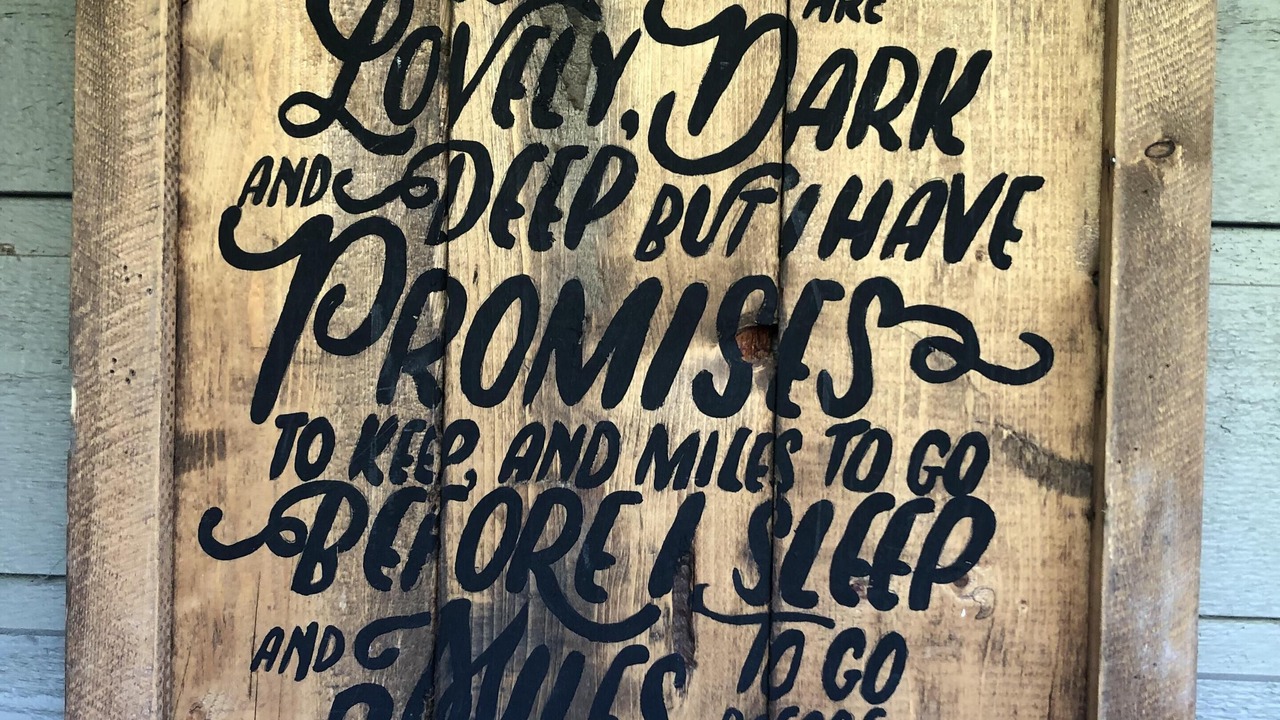 ARE
LOVELY, DARK
AND DEEP BUT I HAVE
PROMISES
TO KEEP, AND MILES TO GO
BEFORE I SLEEP
AND MILES TO GO